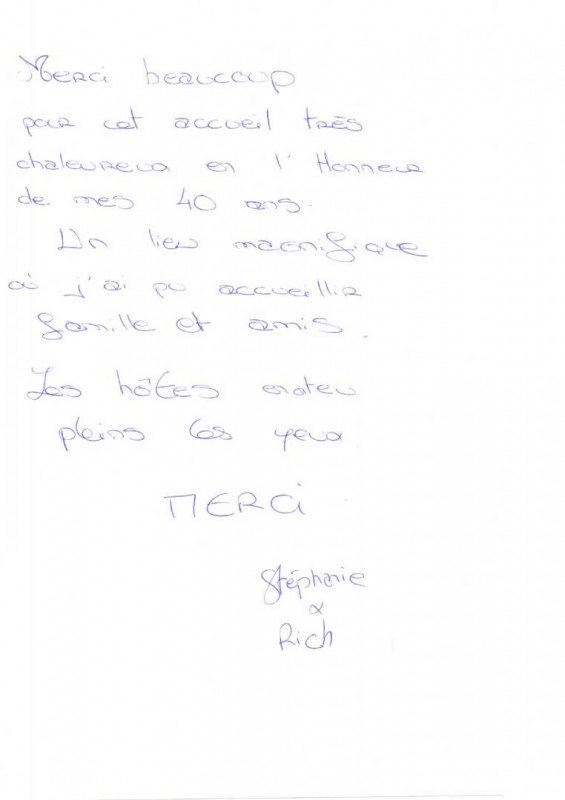 Merci beaucoup
pour cet accueil très
chaleureux en l'Honneur
de mes 40 ans.
Un lieu magnifique
où j'ai pu accueillir
famille et amis.
Les hôtes en
pleins les yeux
MERCI
Stéphanie
&
Rich